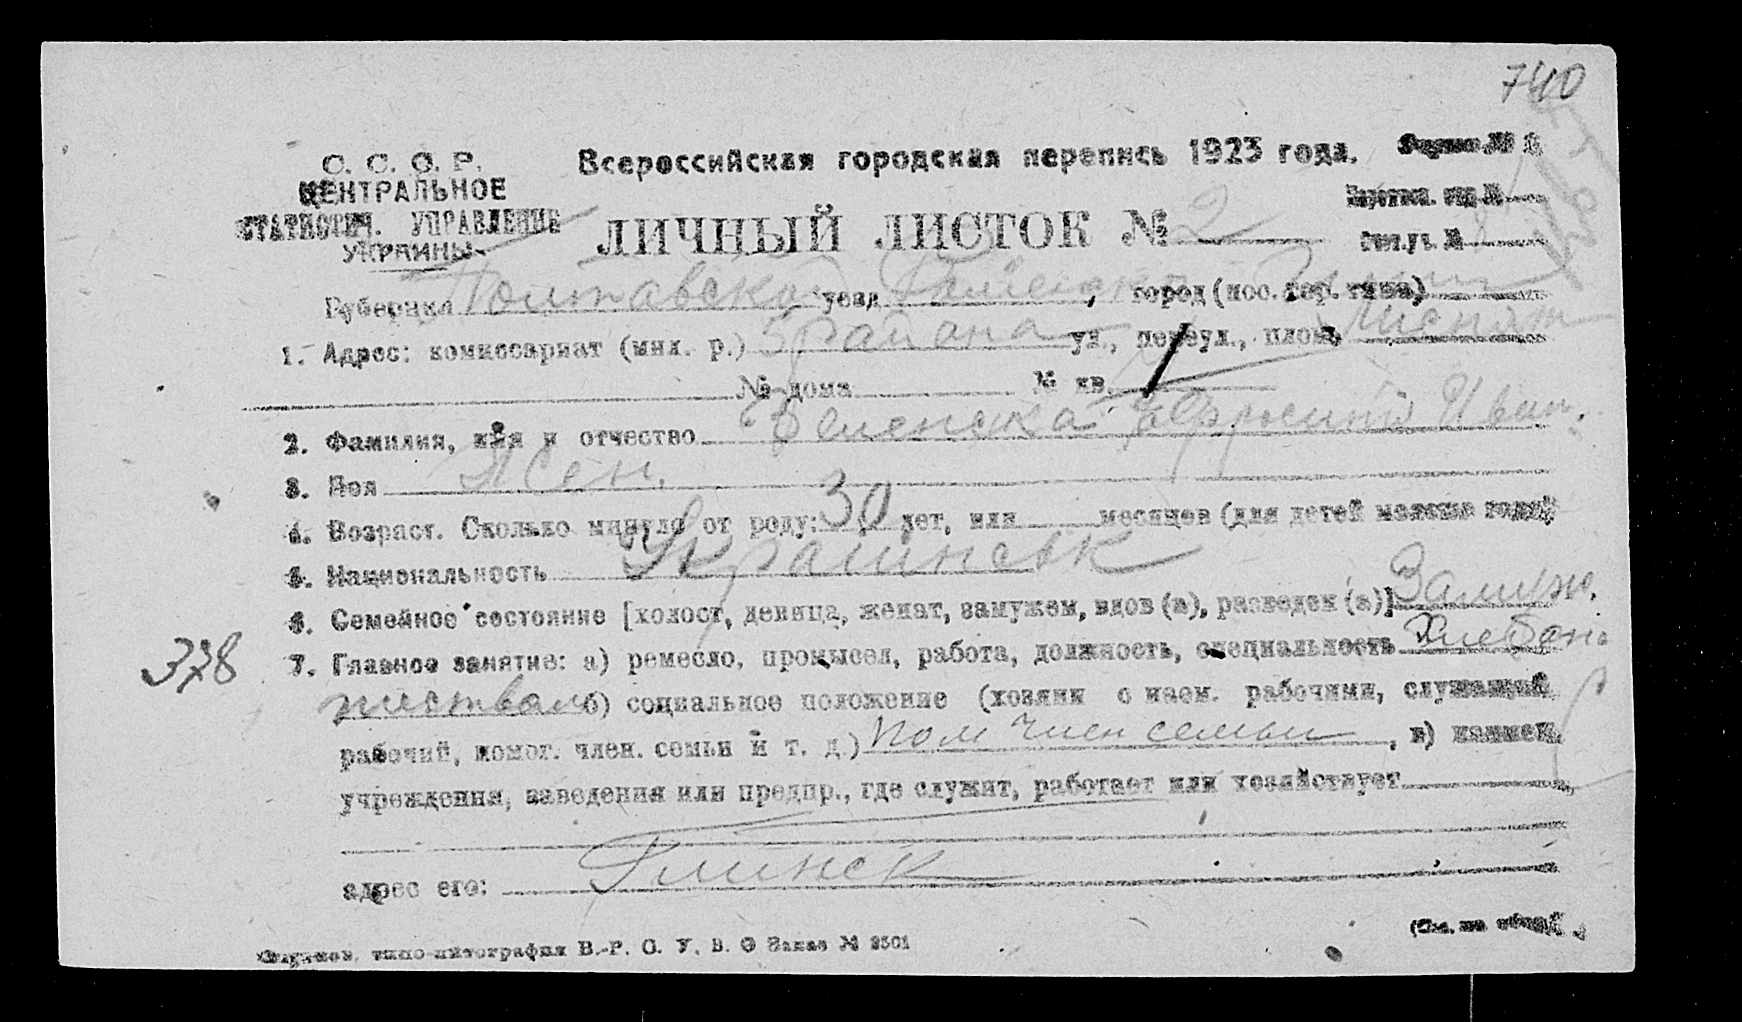 740
С. С. С. Р.
ЦЕНТРАЛЬНОЕ
СТАТИСТИЧ. УПРАВЛЕНИЕ
УКРАИНЫ
Всероссийская городская перепись 1923 года.
Форма № 2
ЛИЧНЫЙ ЛИСТОК № 2
Переписн. отд. №
Счетн. уч. №
Губерния Полтавска уезд , город (пос. гор. типа)
1. Адрес: комиссариат (мил. р.) 5 района ул., переул., площ.
№ дома № кв.
2. Фамилия, имя и отчество Иван.
3. Пол Жен.
4. Возраст. Сколько минуло от роду: 30 лет, или месяцев (для детей моложе года)
5. Национальность Украинськ
6. Семейное состояние [холост, девица, женат, замужем, вдов (а), разведен (а)] Замуж.
7. Главное занятие: а) ремесло, промысел, работа, должность, специальность Хлебопа
378
б) социальное положение (хозяин с наем. рабочими, служащий,
рабочий, помог. член. семьи и т. д.) пом член семьи , в) наимен.
учреждения, заведения или предпр., где служит, работает или хозяйствует
адрес его: Глинск
типо-литография В.-Р. О. У. В. О Заказ № 2501
(См. на обор.)